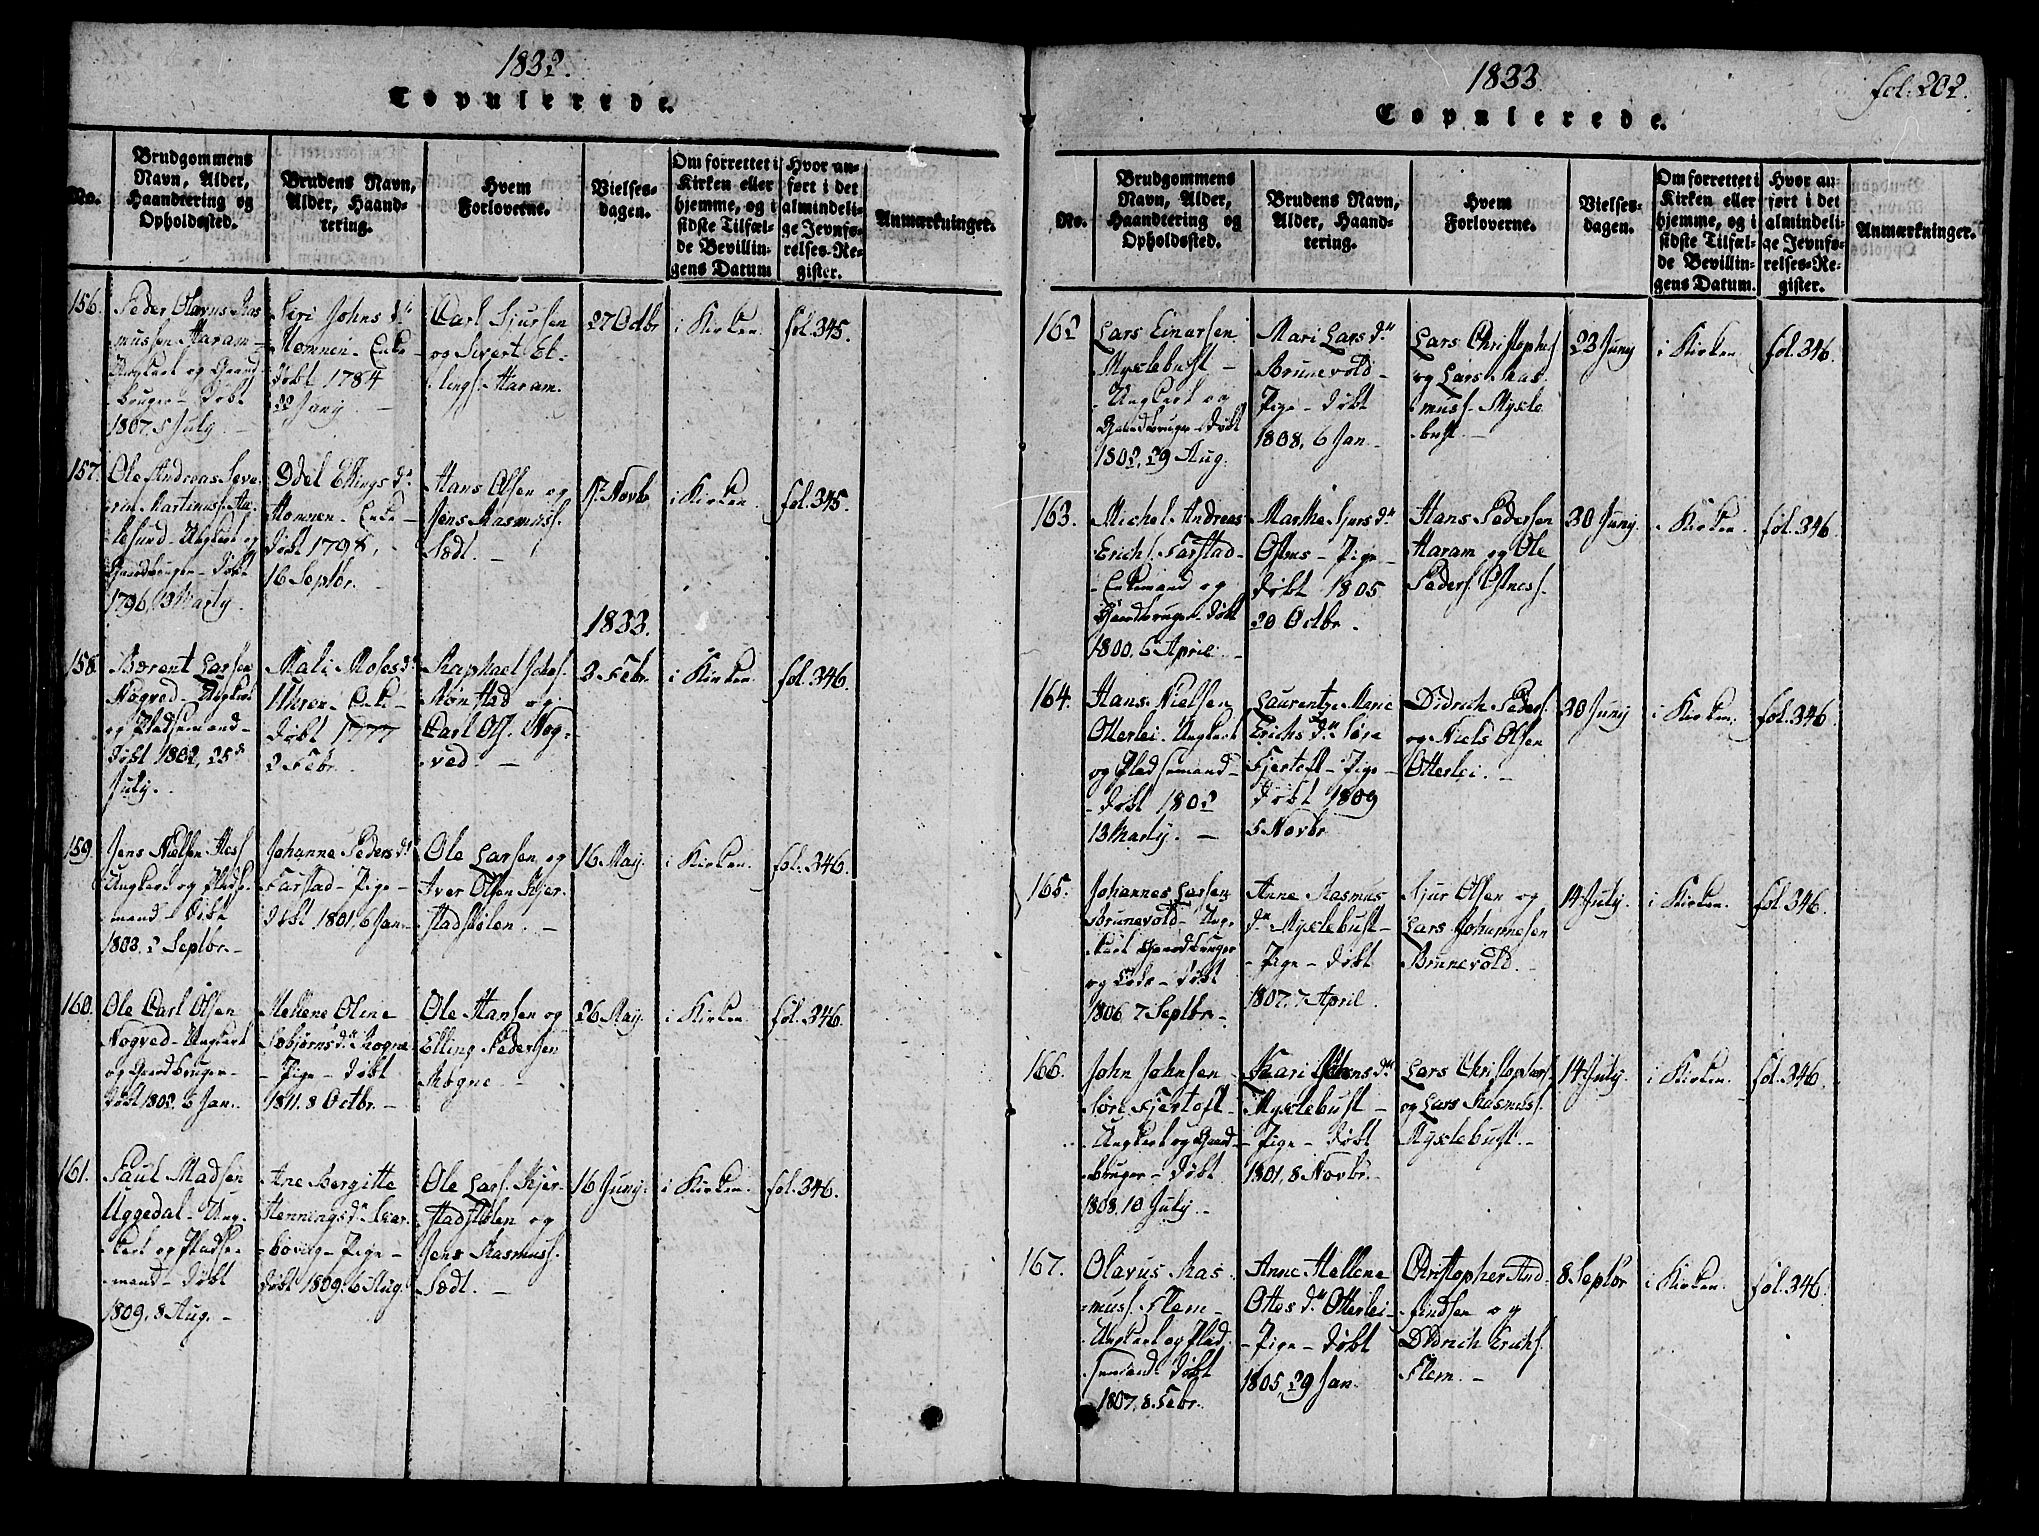 1832.
Copulerede.
No.
Brudgommens
Navn, Alder,
Haandtering og
Opholdssted.
Brudens Navn,
Alder, Haand-
tering.
Hvem
Forloverne.
Vielses-
dagen.
Om forrettet i
Kirken eller
hjemme, og i
sidste Tilfæl-
de Bevillin-
gens Datum
Hvor an-
ført i det
almindeli-
ge Jevnfø-
relses-Re-
gister.
Anmærkninger.
156.
Peder Olavus Ras
mussen Haram
Ungkarl og Gaard
bruger - Døbt
1807. 5 July.
Siri Johns d.
Homnen - Enke
Døbt 1784
22 Jany.
Carl Sjursen
og Sivert El-
lings. Haram.
27 Octbr
i Kirken.
fol. 345.
157.
Ole Andreas Seve
rin Martinuss. Aa
lesund - Ungkarl og
Gaardbruger - Døbt
1796, 13 Marty.
Odel Ellings d.
Homnen - Enke -
Døbt 1798,
16 Septbr.
Hans Olsen og
Jens Rasmuss.
Sædt. -
17 Novb
i Kirken.
fol. 345.
1833.
158.
Bærent Larsen
Nogved - Ungkarl
og Pladsemand -
Døbt 1802, 25
July.
Mali Moses d.
- Enke -
Døbt 1777
2 Febr.
Raphael
Rønstad og
Carl Ols. Nog-
ved. -
3 Febr.
i Kirken.
fol. 346.
159.
Jens Nielsen Hess
Ungkarl og Pladse-
mand - Døbt
1803. 2 Septbr -
Johanne Peders d.
Farstad - Pige -
Døbt 1801, 6 Jan.
Ole Larsen og
Iver Olsen Kjer-
stadstølen. -
16 May.
i Kirken.
fol. 346.
160.
Ole Carl Olsen
Nogved - Ungkarl
og Gaardbruger -
Døbt 1802. 6 Jan.
Hellene Oline
Esbjørns d. Rogne
- Pige - Døbt
1811. 8 Octbr. -
Ole Hansen og
Elling Pedersen
Rogne. -
26 May.
i Kirken.
fol. 346.
161.
Paul Madsen
Uggedal - Ung-
karl og Pladse-
mand - Døbt
1809, 8 Aug. -
Ane Bergitte
Hennings d.
- Pige -
Døbt 1809. 6 Aug.
Ole Lars. Kjer-
stadstølen og
Jens Rasmuss.
Sædt. -
16 Juny.
i Kirken.
fol. 346.
1833
fol. 202.
Copulerede.
No.
Brudgommens
Navn, Alder,
Haandtering og
Opholdssted.
Brudens Navn,
Alder, Haand-
tering.
Hvem
Forloverne.
Vielses-
dagen.
Om forrettet i
Kirken eller
hjemme, og i
sidste Tilfæl-
de Bevillin-
gens Datum.
Hvor an-
ført i det
almindeli-
ge Jevnfø-
relses-Re-
gister.
Anmærkninger.
162
Lars Einarsen
Myxlebust -
Ungkarl og
Gaardbruger - Døbt
1802, 29 Aug.
Mari Lars d.
Brunevold -
Pige - Døbt
1808, 6 Jan. -
Lars Christophs
og Lars Ras
muss. Myxle
bust. -
23 Juny
i Kirken.
fol. 346.
163.
Michel Andreas
Erichs. Farstad -
Enkemand og
Gaardbruger - Døbt
1800. 6 April. -
Marthe Sjurs d.
Østnes - Pige -
Døbt 1805
20 Octbr. -
Hans Pedersen
Haram og Ole
Peders. Østness.
30 Juny
i Kirken.
fol. 346.
164.
Hans Nielsen
Otterlei - Ungkarl
og Pladsemand -
- Døbt 1802
13 Marty. -
Laurentze Marie
Erichs d. Søre
Fjertoft - Pige -
Døbt 1809
5 Novbr
Didrich Peders.
og Niels Olsen
Otterlei. -
30 Juny
i Kirken.
fol. 346.
165.
Johannes Larsen
Brunevold - Ung-
karl Gaardbruger
og Lods - Døbt
1806 7 Septbr.
Anne Rasmus
d. Myxlebust -
- Pige - Døbt
1807. 7 April.
Sjur Olsen og
Lars Johannesen
Brunevold. -
14 July.
i Kirken.
fol. 346.
166.
John Johnsen
Søre Fjertoft -
Ungkarl og Gaard-
bruger - Døbt
1808. 10 July. -
Kari d.
Myxlebust -
- Pige - Døbt
1801, 8 Novbr. -
Lars Christophers.
og Lars Rasmuss.
Myxlebust. -
14 July.
i Kirken.
fol. 346.
167.
Olavus Ras
muss. Flem -
Ungkarl og Plad
semand - Døbt
1807. 8. Febr.
Anne Hellene
Ottes d. Otterlei -
- Pige - Døbt
1805, 29 Jan.
Christopher And
findsen og
Didrich Erichs.
Flem. -
8 Septbr
i Kirken.
fol. 346.